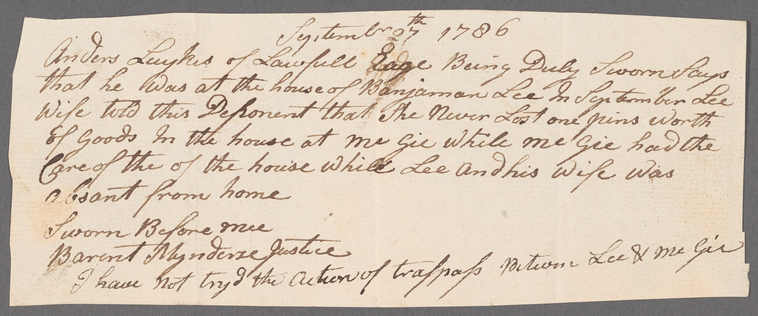 September 27th 1786
Anders Luykes of Lawfull Eage Being Duly Sworn Says
that he Was at the house of Banjaman Lee In September Lee
Wife told this Deponent that She Never Lost one pins Worth
Of Goods In the house at Mc Gie While Mc Gie had the
Care of the of the house While Lee And his Wife Was
absant from home
Sworn Before mee
Barent Mynderse Justice
I have not tryd the Action of traspass Betwen Lee & Mc Gie